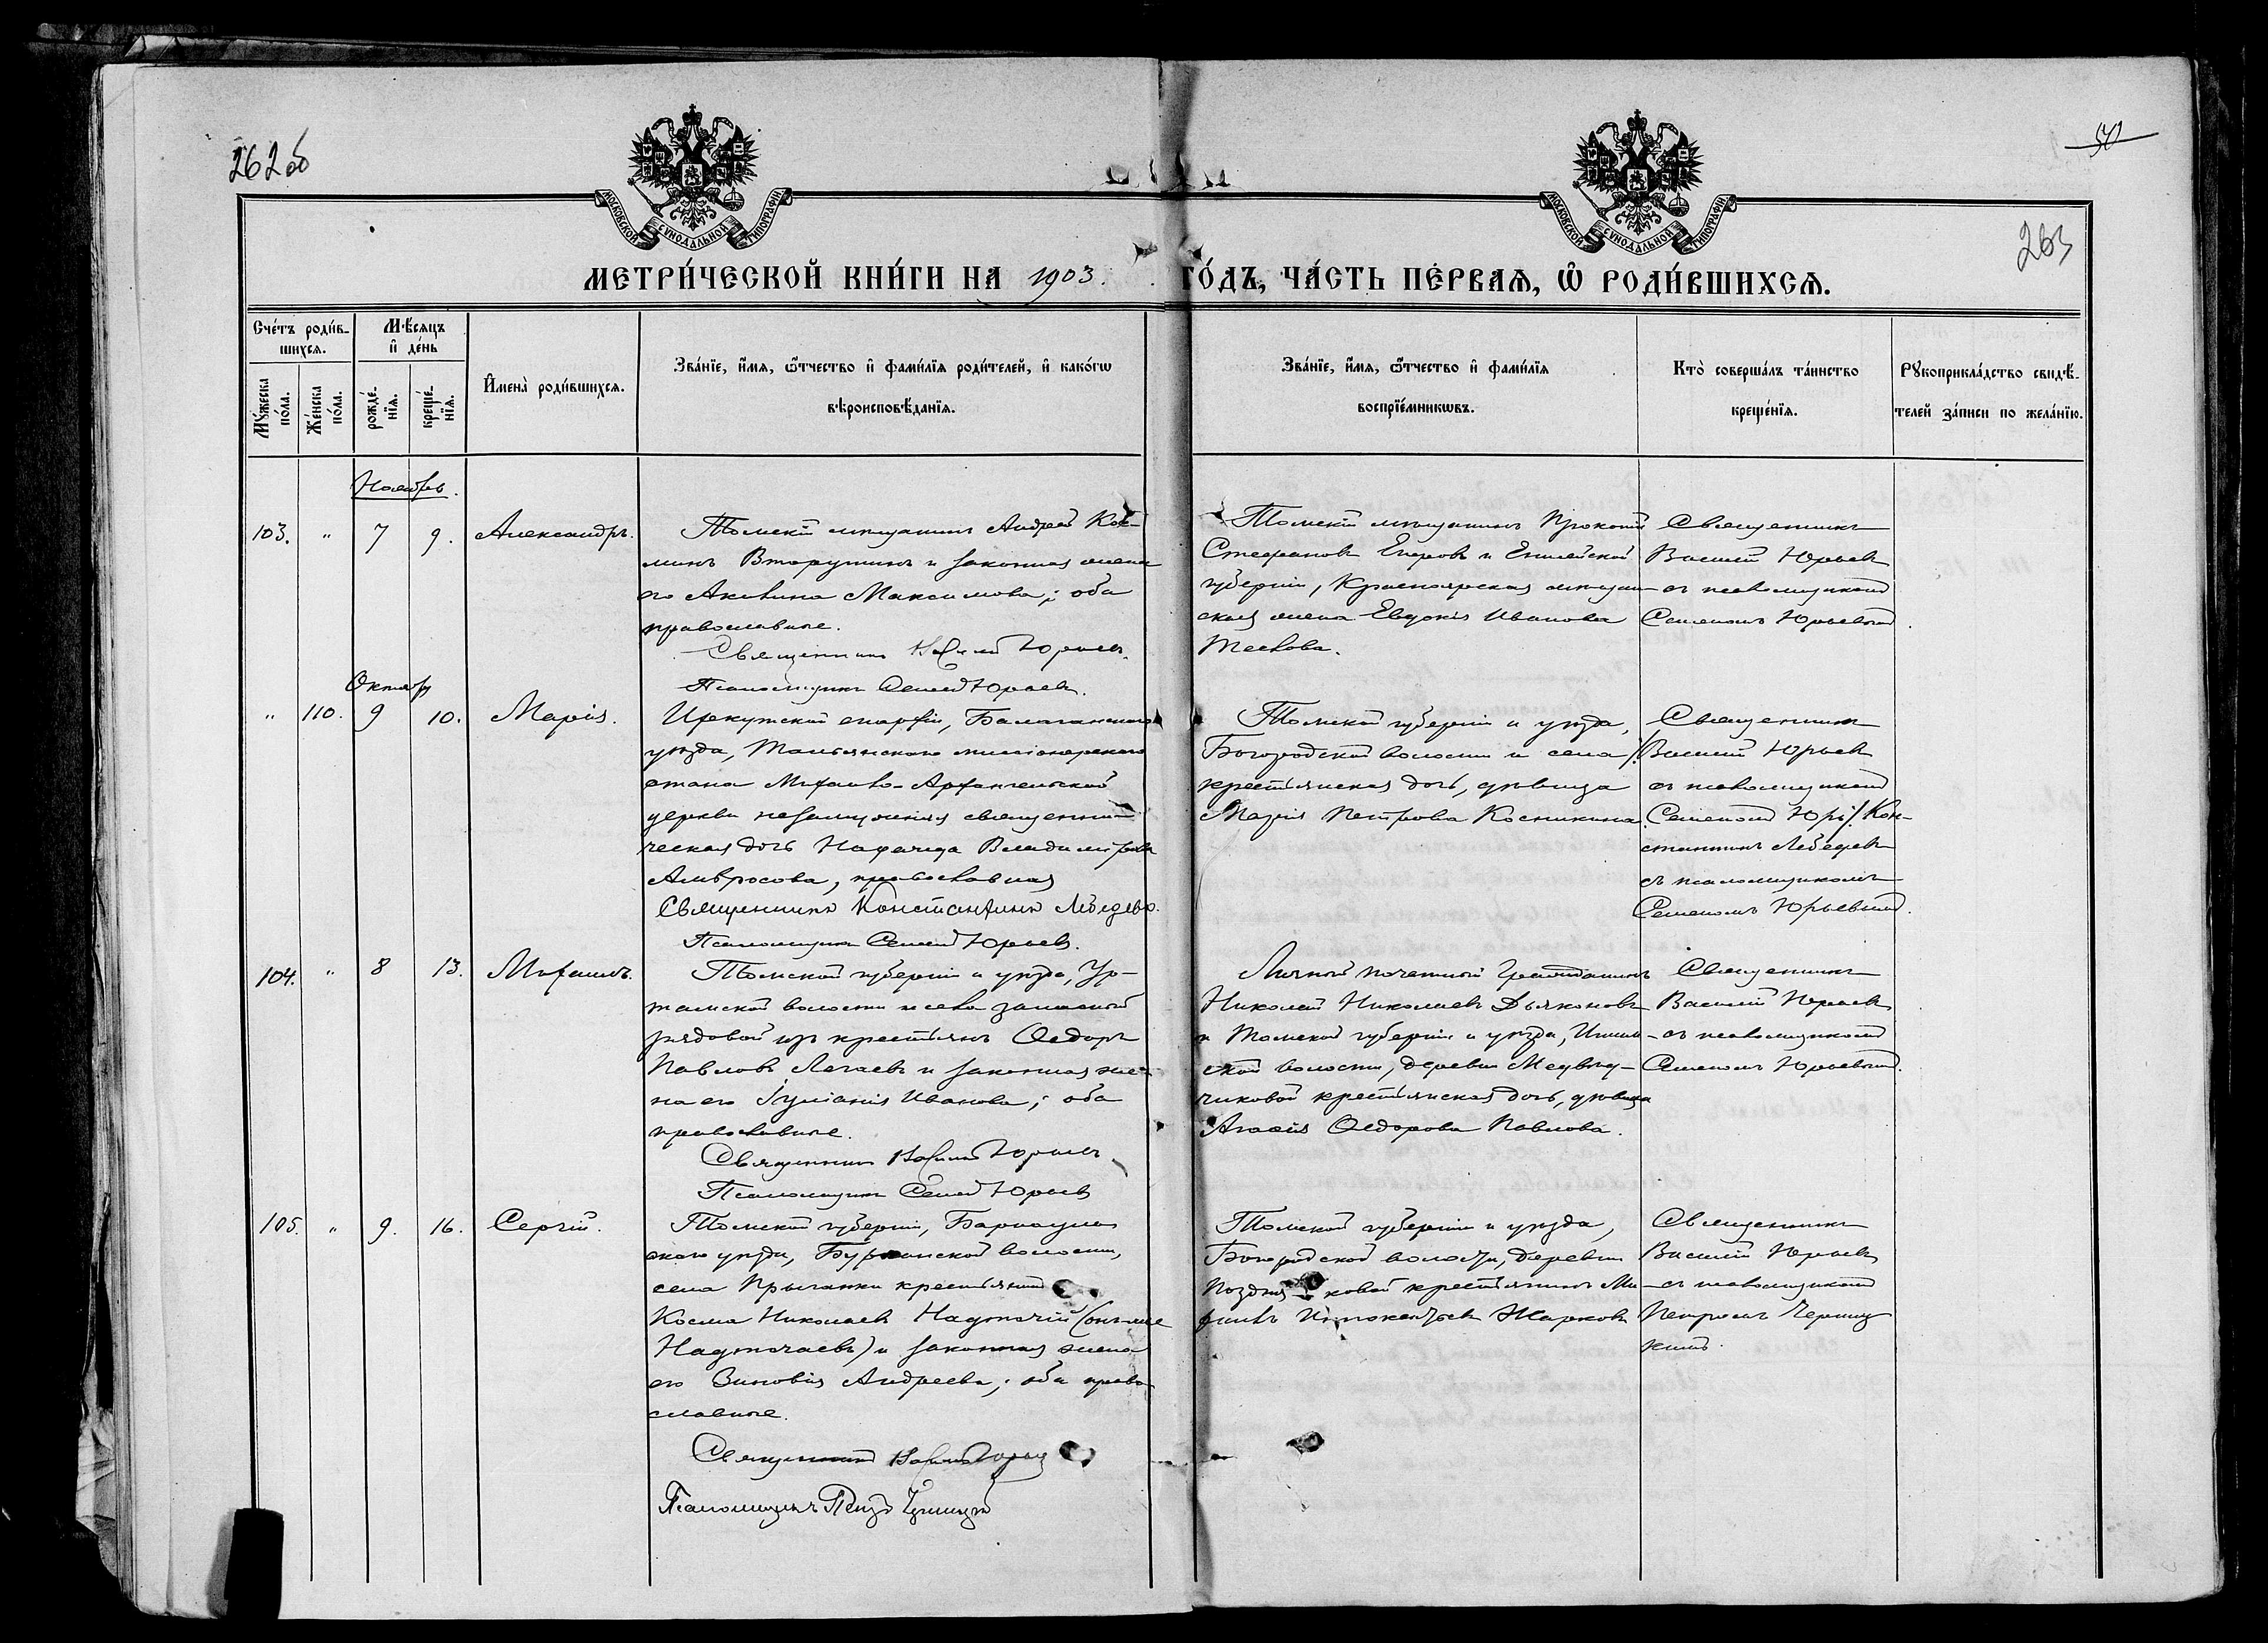 262об
50
263
МОСКОВСКОЙ СУНОДАЛЬНОЙ ТИПОГРАФІИ
МОСКОВСКОЙ СУНОДАЛЬНОЙ ТИПОГРАФІИ
МЕТРИ́ЧЕСКОЙ КНИ́ГИ НА 1903. ГО́ДЪ, ЧА́СТЬ ПЕ́РВАѦ, Ѿ РОДИ́ВШИХСѦ.
Сче́тъ роди́в-
шихсѧ.
Мꙋ́жеска по́ла.
Же́нска по́ла.
Мѣ́сяцъ
и҆ де́нь
рожде́-
нїѧ.
креще́-
нїѧ.
И҆мена̀ роди́вшихсѧ.
Зва́нїе, и҆́мѧ, ѻ҆́тчество и҆ фами́лїѧ роди́телей, и҆ како́гѡ
вѣроисповѣ́данїѧ.
Зва́нїе, и҆́мѧ, ѻ҆́тчество и҆ фами́лїѧ
воспрїе́мникѡвъ.
Кто̀ соверша́лъ та́инство
креще́нїѧ.
Рꙋкоприкла́дство свидѣ́-
телей за́писи по жела́нїю.
Ноябрь.
103. " 7 9. Александръ.
Томскій мѣщанинъ Андрей Кос-
минъ Вторушинъ и законная жена
его Акилина Максимова; оба
православные.
Священникъ Василій Юрьевъ.
Псаломщикъ Семенъ Юрьевъ.
Томскій мѣщанинъ Прокопій
Стефановъ Егоровъ и Енисейской
губерніи, Красноярская мѣщан-
ская жена Евдокія Иванова
Священникъ
Василій Юрьевъ
съ псаломщикомъ
Семеномъ Юрьевымъ.
Октябр
" 110. 9 10. Марія.
Иркутской епархіи, Балаганскаго
уѣзда, миссіонерскаго
стана Михаило-Архангельской
церкви незамужняя священни-
ческая дочь Владимірова
Амвросова, православная
Священникъ Константинъ Лебедевъ.
Псаломщикъ Семенъ Юрьевъ.
Томской губерніи и уѣзда,
Богородской волости и села
крестьянская дочь, дѣвица
Марія Петрова Косникина.
Священникъ
Василій Юрьевъ
съ псаломщикомъ
Семеномъ Юрь/. Кон-
стантинъ Лебедевъ
съ псаломщикомъ
Семеномъ Юрьевымъ.
104. " 8 13. Михаилъ.
Томской губерніи и уѣзда, Ур-
тамской волости и села запасный
рядовой изъ крестьянъ Ѳедоръ
Павловъ Легаевъ и законная же-
на его Іуліанія Иванова; оба
православные.
Священникъ Василій Юрьевъ
Псаломщикъ Семенъ Юрьевъ
Личный почетный гражданинъ
Николай Николаевъ Дьяконовъ
и Томской губерніи и уѣзда,
ской волости, деревни Медвѣд-
чиковой крестьянская дочь, дѣвица
Агаѳія Ѳедорова Павлова.
Священникъ
Василій Юрьевъ
съ псаломщикомъ
Семеномъ Юрьевымъ.
105. " 9. 16. Сергій.
Томской губерніи, Барнауль-
скаго уѣзда, Бурлинской волости,
села Прыганки крестьянинъ
Косма Николаевъ Надточій (онъ-же
Надточаевъ) и законная жена
его Зиновія Андреева; оба право-
славные.
Священникъ Василій Юрьевъ
Псаломщикъ Петръ
Томской губерніи и уѣзда,
Богородской волости, деревни
Поздня-ковой крестьянинъ Ми-
хаилъ Иннокентьевъ Жарковъ
Священникъ
Василій Юрьевъ
съ псаломщикомъ
Петромъ